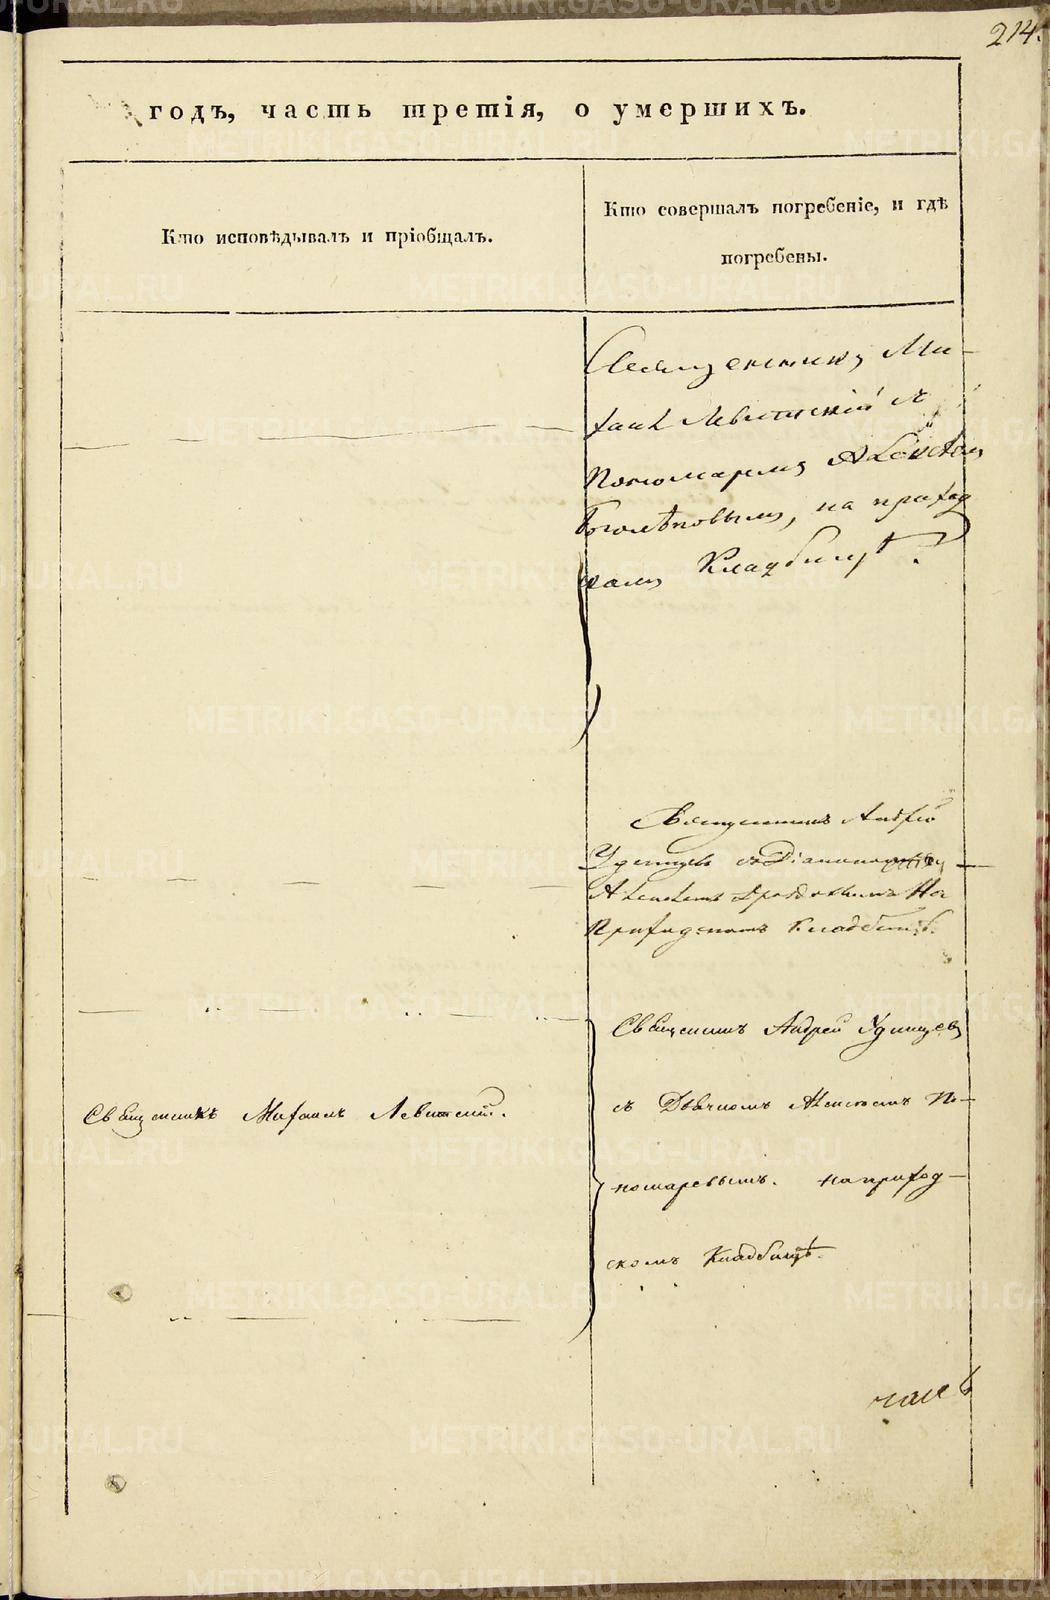 214.
годъ, часть третія, о умершихъ.
Кто исповѣдывалъ и пріобщалъ.
Кто совершалъ погребеніе, и гдѣ
погребены.
Священникъ Ми-
хаилъ Левитскій съ
Пономаремъ Алексѣемъ
на приход
скомъ Кладбищѣ.
Священникъ Андрей
Удинцевъ съ Діакономъ
Алексѣемъ Дроздовымъ На
Приходскомъ кладбищѣ.
Священникъ Андрей Удинцевъ
Священникъ Михаилъ Левитскій.
съ Дьячкомъ Алексѣемъ По-
номаревымъ. на приход-
скомъ Кладбищѣ.
METRIKI.GASO-URAL.RU